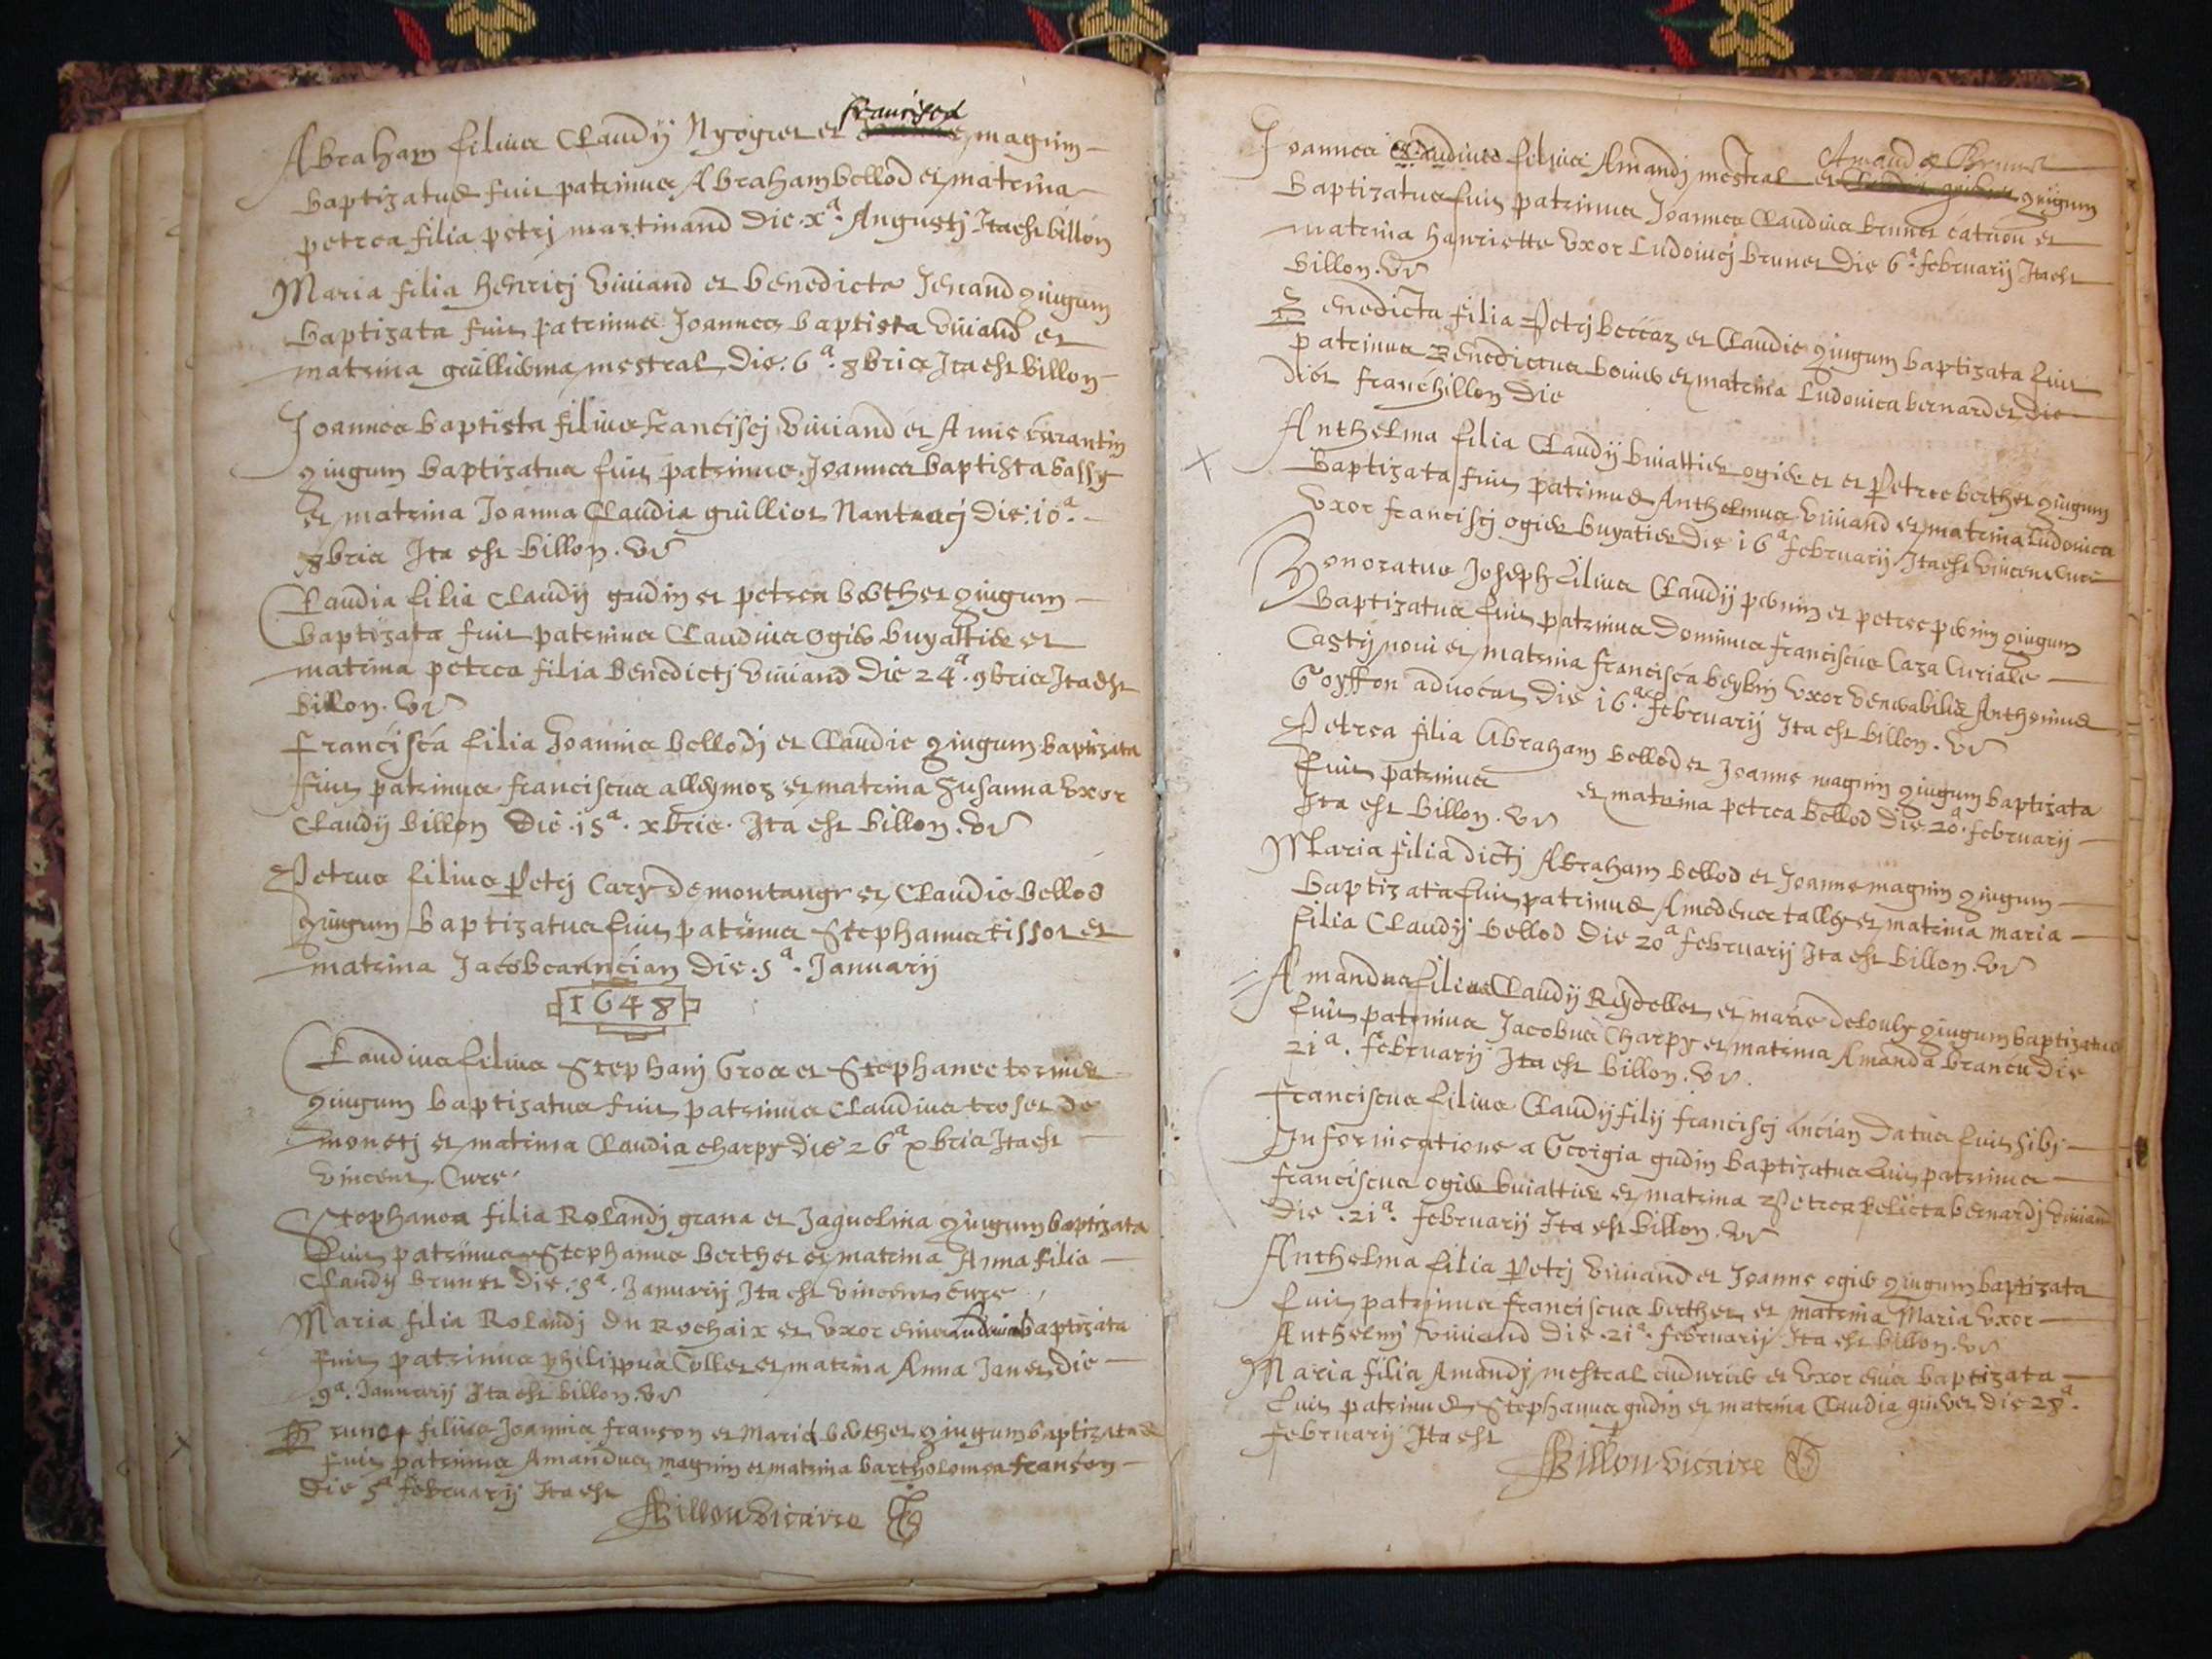 francisca
Abraham filius Claudij Nyogret et magnin
baptizatus fuit patrinus Abraham bellod et matrina
petrea filia petri martinand die xª. Augusti Ita est billon
Maria filia henrici viuiand et benedicte Jenand giugum
baptizata fuit patrinus Joannes baptista viuiand et
matrina guillierma mestral die. 6ª. 8bris Ita est billon
Joannes baptista filius francisci viuiand et Amie carantin
giugum baptizatus fuit patrinus Joannes baptista bassy
et matrina Joanna Claudia guilliot Nantuaci die. 10ª.
8bris Ita est billon. vr
Claudia filia Claudij gudin et petrea berthet giugum
baptizata fuit patrinus Claudius ogier buyattier et
matrina petrea filia benedicti viuiand die 24ª. 9bris Ita est
billon. vr
francisca filia Joannis bellodi et Claudie giugum baptizata
fuit patrinus franciscus alleymoz et matrina Susanna vxor
Claudij billon die. 15ª. xbris. Ita est billon. vr
Petrus filius Petri Cary de montangy et Claudie bellod
giugum baptizatus fuit patrinus Stephanus tissot et
matrina Jacobea ancian die. 5ª. Januarij
1648
Claudius filius Stephani Gros et Stephanee tornier
giugum baptizatus fuit patrinus Claudius troset de
moneti et matrina Claudia charpy die 26ª xbris Ita est
vincent. Cure
Stephanea filia Rolandi grana et Jaquelina giugum baptizata
fuit patrinus Stephanus berthet et matrina Anna filia
Claudij brunet die. 5ª. Januarij Ita est vincent cure
Maria filia Rolandi du Rochaix et vxor eius Ludouica baptizata
fuit patrinus philippus Collet et matrina Anna Janet die
9ª. Januarij Ita est billon. vr
filius Joannis franson et Marie berthet giugum baptizatus
fuit patrinus Amandus magnin et matrina bartholomea franson
die 5ª februarij Ita est
Billon vicaire
Amand a Brunet
Joannes Claudius filius Amandi mestral et giugum
baptizatus fuit patrinus Joannes Claudius brunet catron et
matrina hanriette vxor Ludouici brunet die 6ª. februarij Ita est
billon. vr
Benedicta filia Petri beccaz et Claudie giugum baptizata fuit
patrinus Benedictus bouier et matrina Ludouica bernardet die
franchillon die
Anthelma filia Claudij buiattier ogier et et Petree berthet giugum
baptizata fuit patrinus Anthelmus viuiand et matrina Ludouica
vxor francisci ogier buyatier die 16ª februarij Ita est vincent cure
Honoratus Joseph filius Claudij pernin et petree pernin giugum
baptizatus fuit patrinus Dominus franciscus Caza Curiale
Castrinoui et matrina francisca beybin vxor venerabilis Anthonius
Goyffon aduocat die 16ª. februarij Ita est billon. vr
Petrea filia Abraham bellod et Joanne magnin giugum baptizata
fuit patrinus et matrina petrea bellod die 20ª. februarij
Ita est billon. vr
Maria filia dicti Abraham bellod et Joanne magnin giugum
baptizata fuit patrinus Amedeus talley et matrina maria
filia Claudij bellod die 20ª februarij Ita est billon. vr
Amandus filius Claudij Reydellet et marie delouly giugum baptizatus
fuit patrinus Jacobus Charpy et matrina Amanda brancu die
21ª. februarij Ita est billon. vr.
franciscus filius Claudij filij francisci ancian datus fuit sibi
In fornicatione a Georgia gudin baptizatus fuit patrinus
franciscus ogier buiattier et matrina Petrea relicta bernardi viuiand
die. 21ª. februarij Ita est billon. vr
Anthelma filia Petri viuiand et Joanne ogier giugum baptizata
fuit patrinus franciscus berthet et matrina Maria vxor
Anthelmi viuiand die. 21ª. februarij Ita est billon. vr
Maria filia Amandi mestral et vxor eius baptizata
fuit patrinus Stephanus gudin et matrina Claudia die 28ª.
februarij Ita est
Billon vicaire